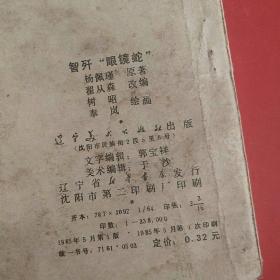 智歼“眼镜蛇”
杨佩瑾 原著
翟从森 改编
树昭
秦岚 绘画
辽宁美术出版社出版
(沈阳市民族街2段 里 号)
文字编辑：郭宝祥
美术编辑：于沙
辽宁省新华书店发行
沈阳市第二印刷厂印刷
开本：787×1092 1/64 印张：2
印数：1—238,000
1985年5月第1版 1985年5月第1次印刷
统一书号：7161·0503 定价：0.32元